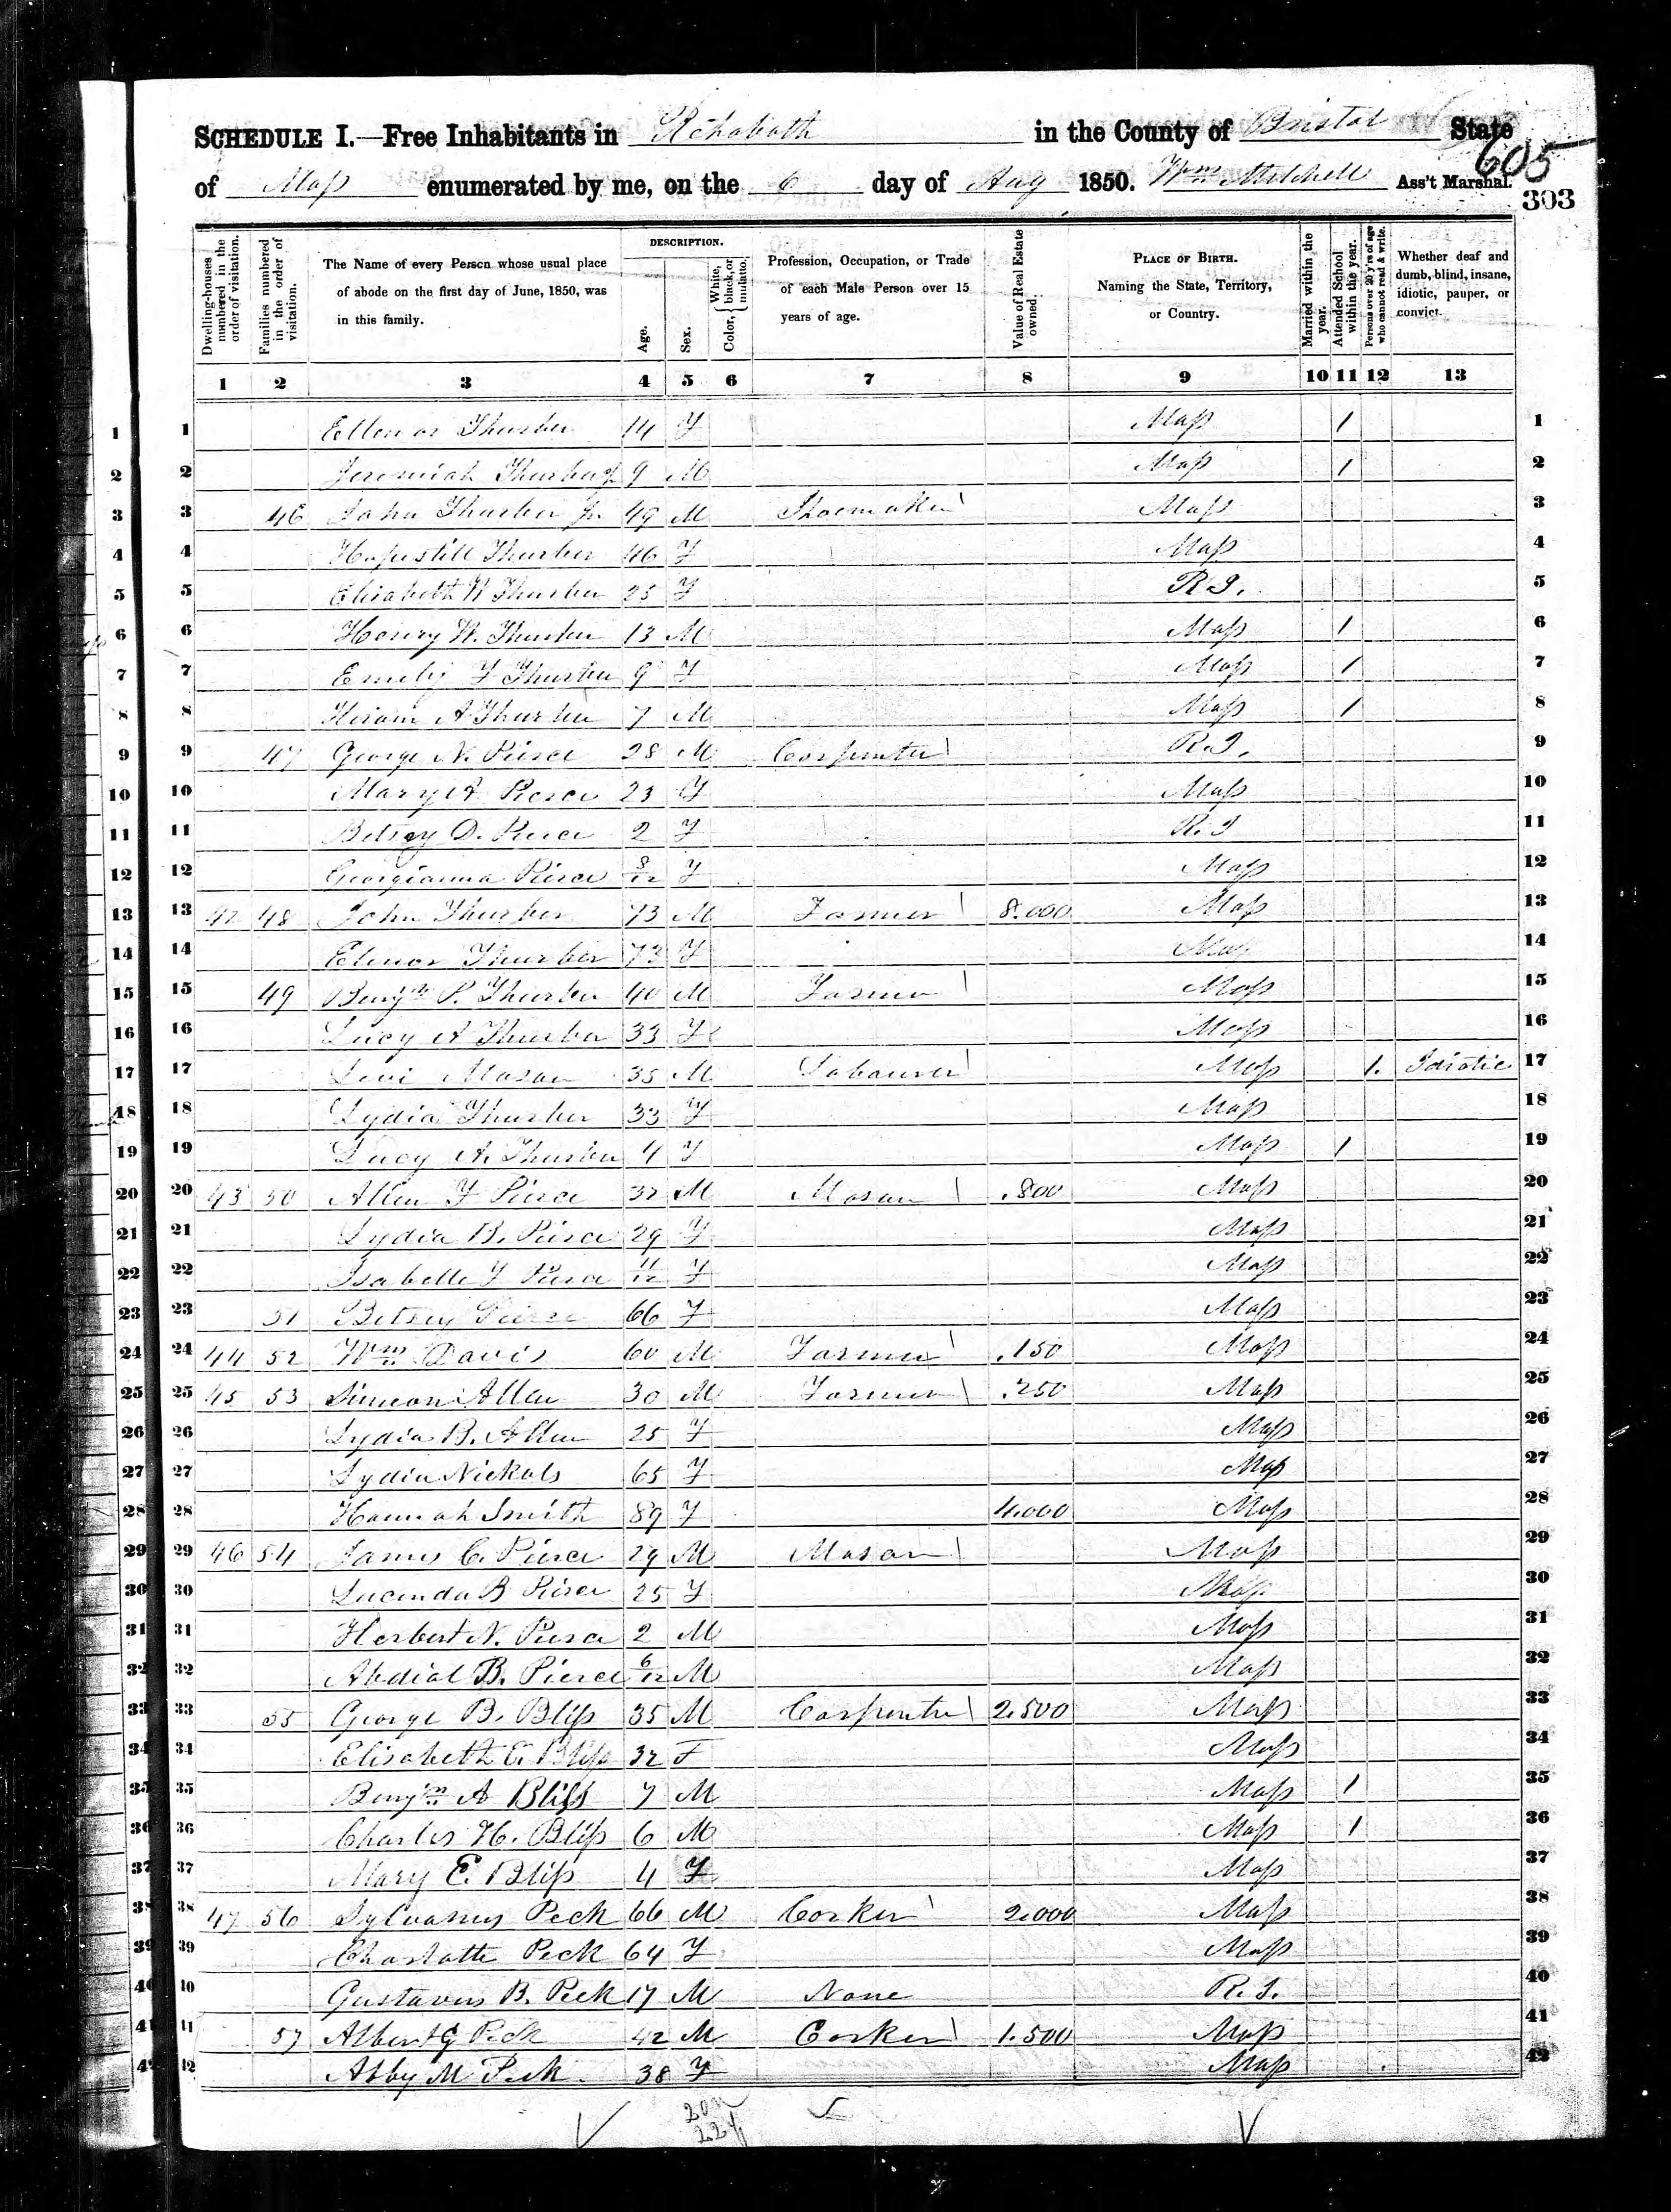 SCHEDULE I.—Free Inhabitants in Rehoboth in the County of Bristol State
of Mass enumerated by me, on the 6 day of Aug 1850. Wm Mitchell Ass't Marshal.
605
303
Dwelling-houses numbered in the order of visitation.
Families numbered in the order of visitation.
The Name of every Person whose usual place of abode on the first day of June, 1850, was in this family.
DESCRIPTION.
Age.
Sex.
Color, { White, black, or mulatto.
Profession, Occupation, or Trade of each Male Person over 15 years of age.
Value of Real Estate owned.
PLACE OF BIRTH. Naming the State, Territory, or Country.
Married within the year.
Attended School within the year.
Persons over 20 y'rs of age who cannot read & write.
Whether deaf and dumb, blind, insane, idiotic, pauper, or convict.
1 2 3 4 5 6 7 8 9 10 11 12 13
1 Ellenor Thurber 14 F Mass 1 1
2 Jeremiah Thurber 9 M Mass 1 2
3 46 John Thurber Jr. 49 M Shoemaker Mass 3
4 Hopestill Thurber 46 F Mass 4
5 Elizabeth Thurber 25 F R.I. 5
6 Henry W. Thurber 13 M Mass 1 6
7 Emily F Thurber 9 F Mass 1 7
8 Hiram A Thurber 7 M Mass 1 8
9 47 George N. Pierce 28 M Carpenter R.I. 9
10 Mary A Pierce 23 F Mass 10
11 Betsey D. Pierce 2 F R.I 11
12 Georgianna Pierce 8/12 F Mass 12
13 42 48 John Thurber 73 M Farmer 8.000 Mass 13
14 Elenor Thurber 73 F Mass 14
15 49 Benjn P. Thurber 40 M Farmer Mass 15
16 Lucy A Thurber 33 F Mass 16
17 Levi Mason 35 M Labourer Mass 1. Idiotic 17
18 Lydia Thurber 33 F Mass 18
19 Lucy A. Thurber 4 F Mass 1 19
20 43 50 Allen F Pierce 32 M Mason .800 Mass 20
21 Lydia B. Pierce 29 F Mass 21
22 Isabelle F Pierce 11/12 F Mass 22
23 51 Betsey Pierce 66 F Mass 23
24 44 52 Wm Davis 60 M Farmer .150 Mass 24
25 45 53 Simeon Allen 30 M Farmer .250 Mass 25
26 Lydia B. Allen 25 F Mass 26
27 Lydia Nickols 65 F Mass 27
28 Hannah Smith 89 F 4.000 Mass 28
29 46 54 James C. Pierce 29 M Mason Mass 29
30 Lucinda B Pierce 25 F Mass 30
31 Herbert N. Pierce 2 M Mass 31
32 Abdial B. Pierce 6/12 M Mass 32
33 55 George B. Bliss 35 M Carpenter 2.500 Mass 33
34 Elisabeth E. Bliss 32 F Mass 34
35 Benjn A Bliss 7 M Mass 1 35
36 Charles H. Bliss 6 M Mass 1 36
37 Mary E. Bliss 4 F Mass 37
38 47 56 Sylvanus Peck 66 M Corker 2.000 Mass 38
39 Charlotte Peck 64 F Mass 39
40 Gustavus B. Peck 17 M None R.I. 40
41 57 Albert G Peck 42 M Corker 1.500 Mass 41
42 Abby M Peck 38 F Mass 42
20m
22f